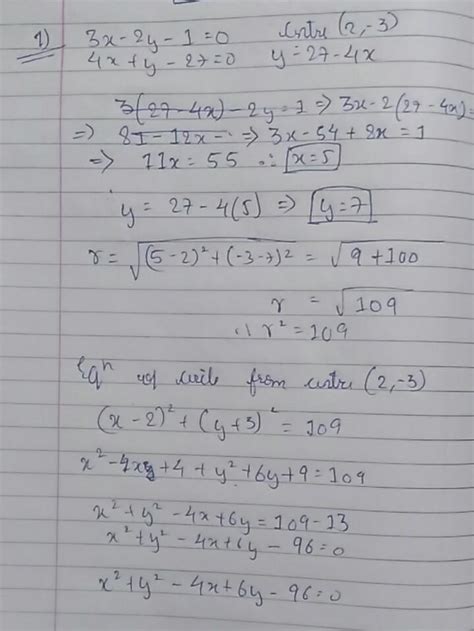 1) 3x-2y-1=0 Cntre (2,-3)
4x+y-27=0 y=27-4x
3(27-4x)-2y=1 => 3x-2(27-4x)=
=> 81-12x- => 3x-54+8x=1
=> 11x=55 ∴ x=5
y = 27-4(5) => y=7
r = √(5-2)²+(-3-7)² = √9+100
r = √109
∴ r² = 109
Eqⁿ of circle from centre (2,-3)
(x-2)²+(y+3)²=109
x²-4x+4+y²+6y+9=109
x²+y²-4x+6y=109-13
x²+y²-4x+6y-96=0
x²+y²-4x+6y-96=0